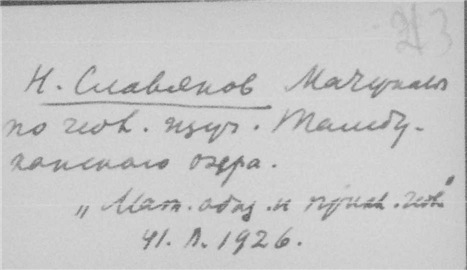 213
Н. Славянов Материалы
по геол. изуч. Тамбу-
канского озера.
„Мат. общ. и прикл. геол."
41. В. 1926.